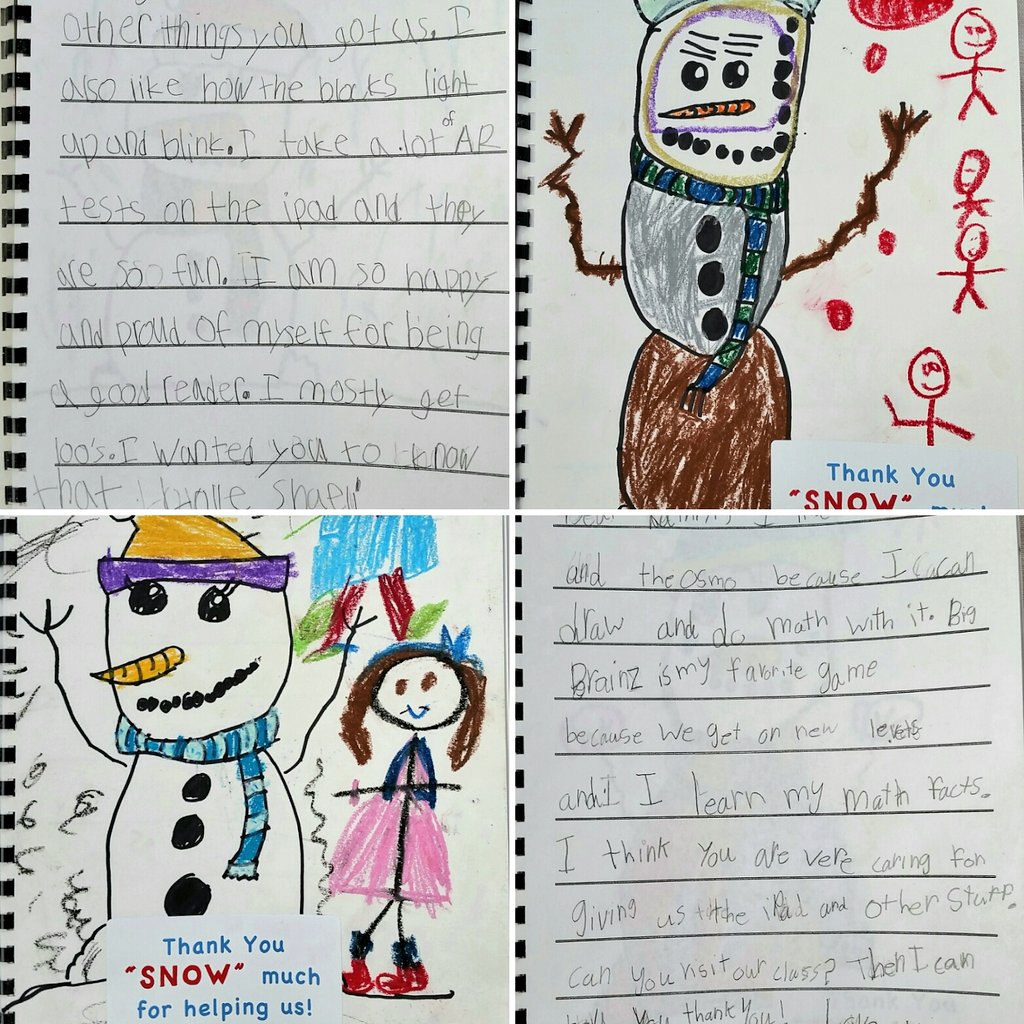 other things you got us. I
also like how the blocks light
up and blink. I take a lot of AR
tests on the ipad and they
are so fun. I am so happy
and proud of myself for being
a good reader. I mostly get
100's. I wanted you to know
that
Thank You
"SNOW" much
Dear
and the osmo because I can
draw and do math with it. Big
Brainz is my favorite game
because we get on new levels
and I I learn my math facts.
I think you are vere caring for
giving us the iPad and other stuff.
can you visit our class? Then I can
you thank you! I
Thank You
"SNOW" much
for helping us!